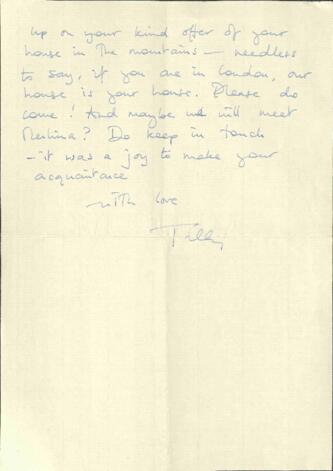 up on your kind offer of your
house in the mountains — needless
to say, if you are in London, our
house is your house. Please do
come! And maybe we will meet
? Do keep in touch
— it was a joy to make your
acquaintance
with love
Tilly